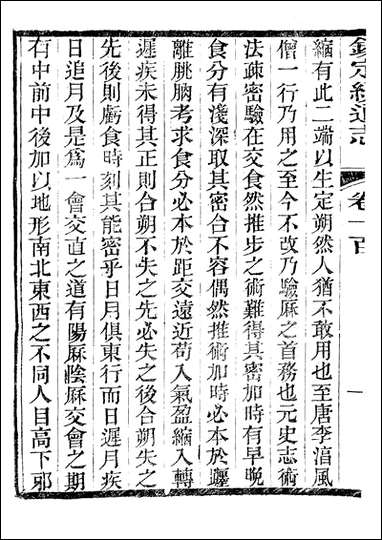 欽定續通志
卷一百
一
縮有此二端以生定朔然人猶不敢用也至唐李淳風
僧一行乃用之至今不改乃驗厤之首務也元史志術
法疎密驗在交食然推步之術難得其密加時有早晚
食分有淺深取其密合不容偶然推術加時必本於躔
離朓朒考求食分必本於距交遠近苟入氣盈縮入轉
遲疾未得其正則合朔不失之先必失之後合朔失之
先後則虧食時刻其能密乎日月俱東行而日遲月疾
日追月及是為一會交直之道有陽厤陰厤交會之期
有中前中後加以地形南北東西之不同人目高下邪